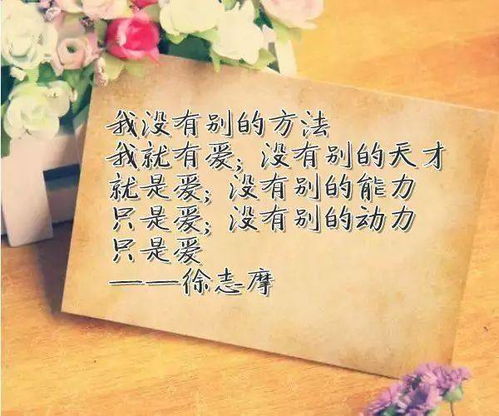 我没有别的方法
我就有爱；没有别的天才
就是爱；没有别的能力
只是爱；没有别的动力
只是爱
——徐志摩